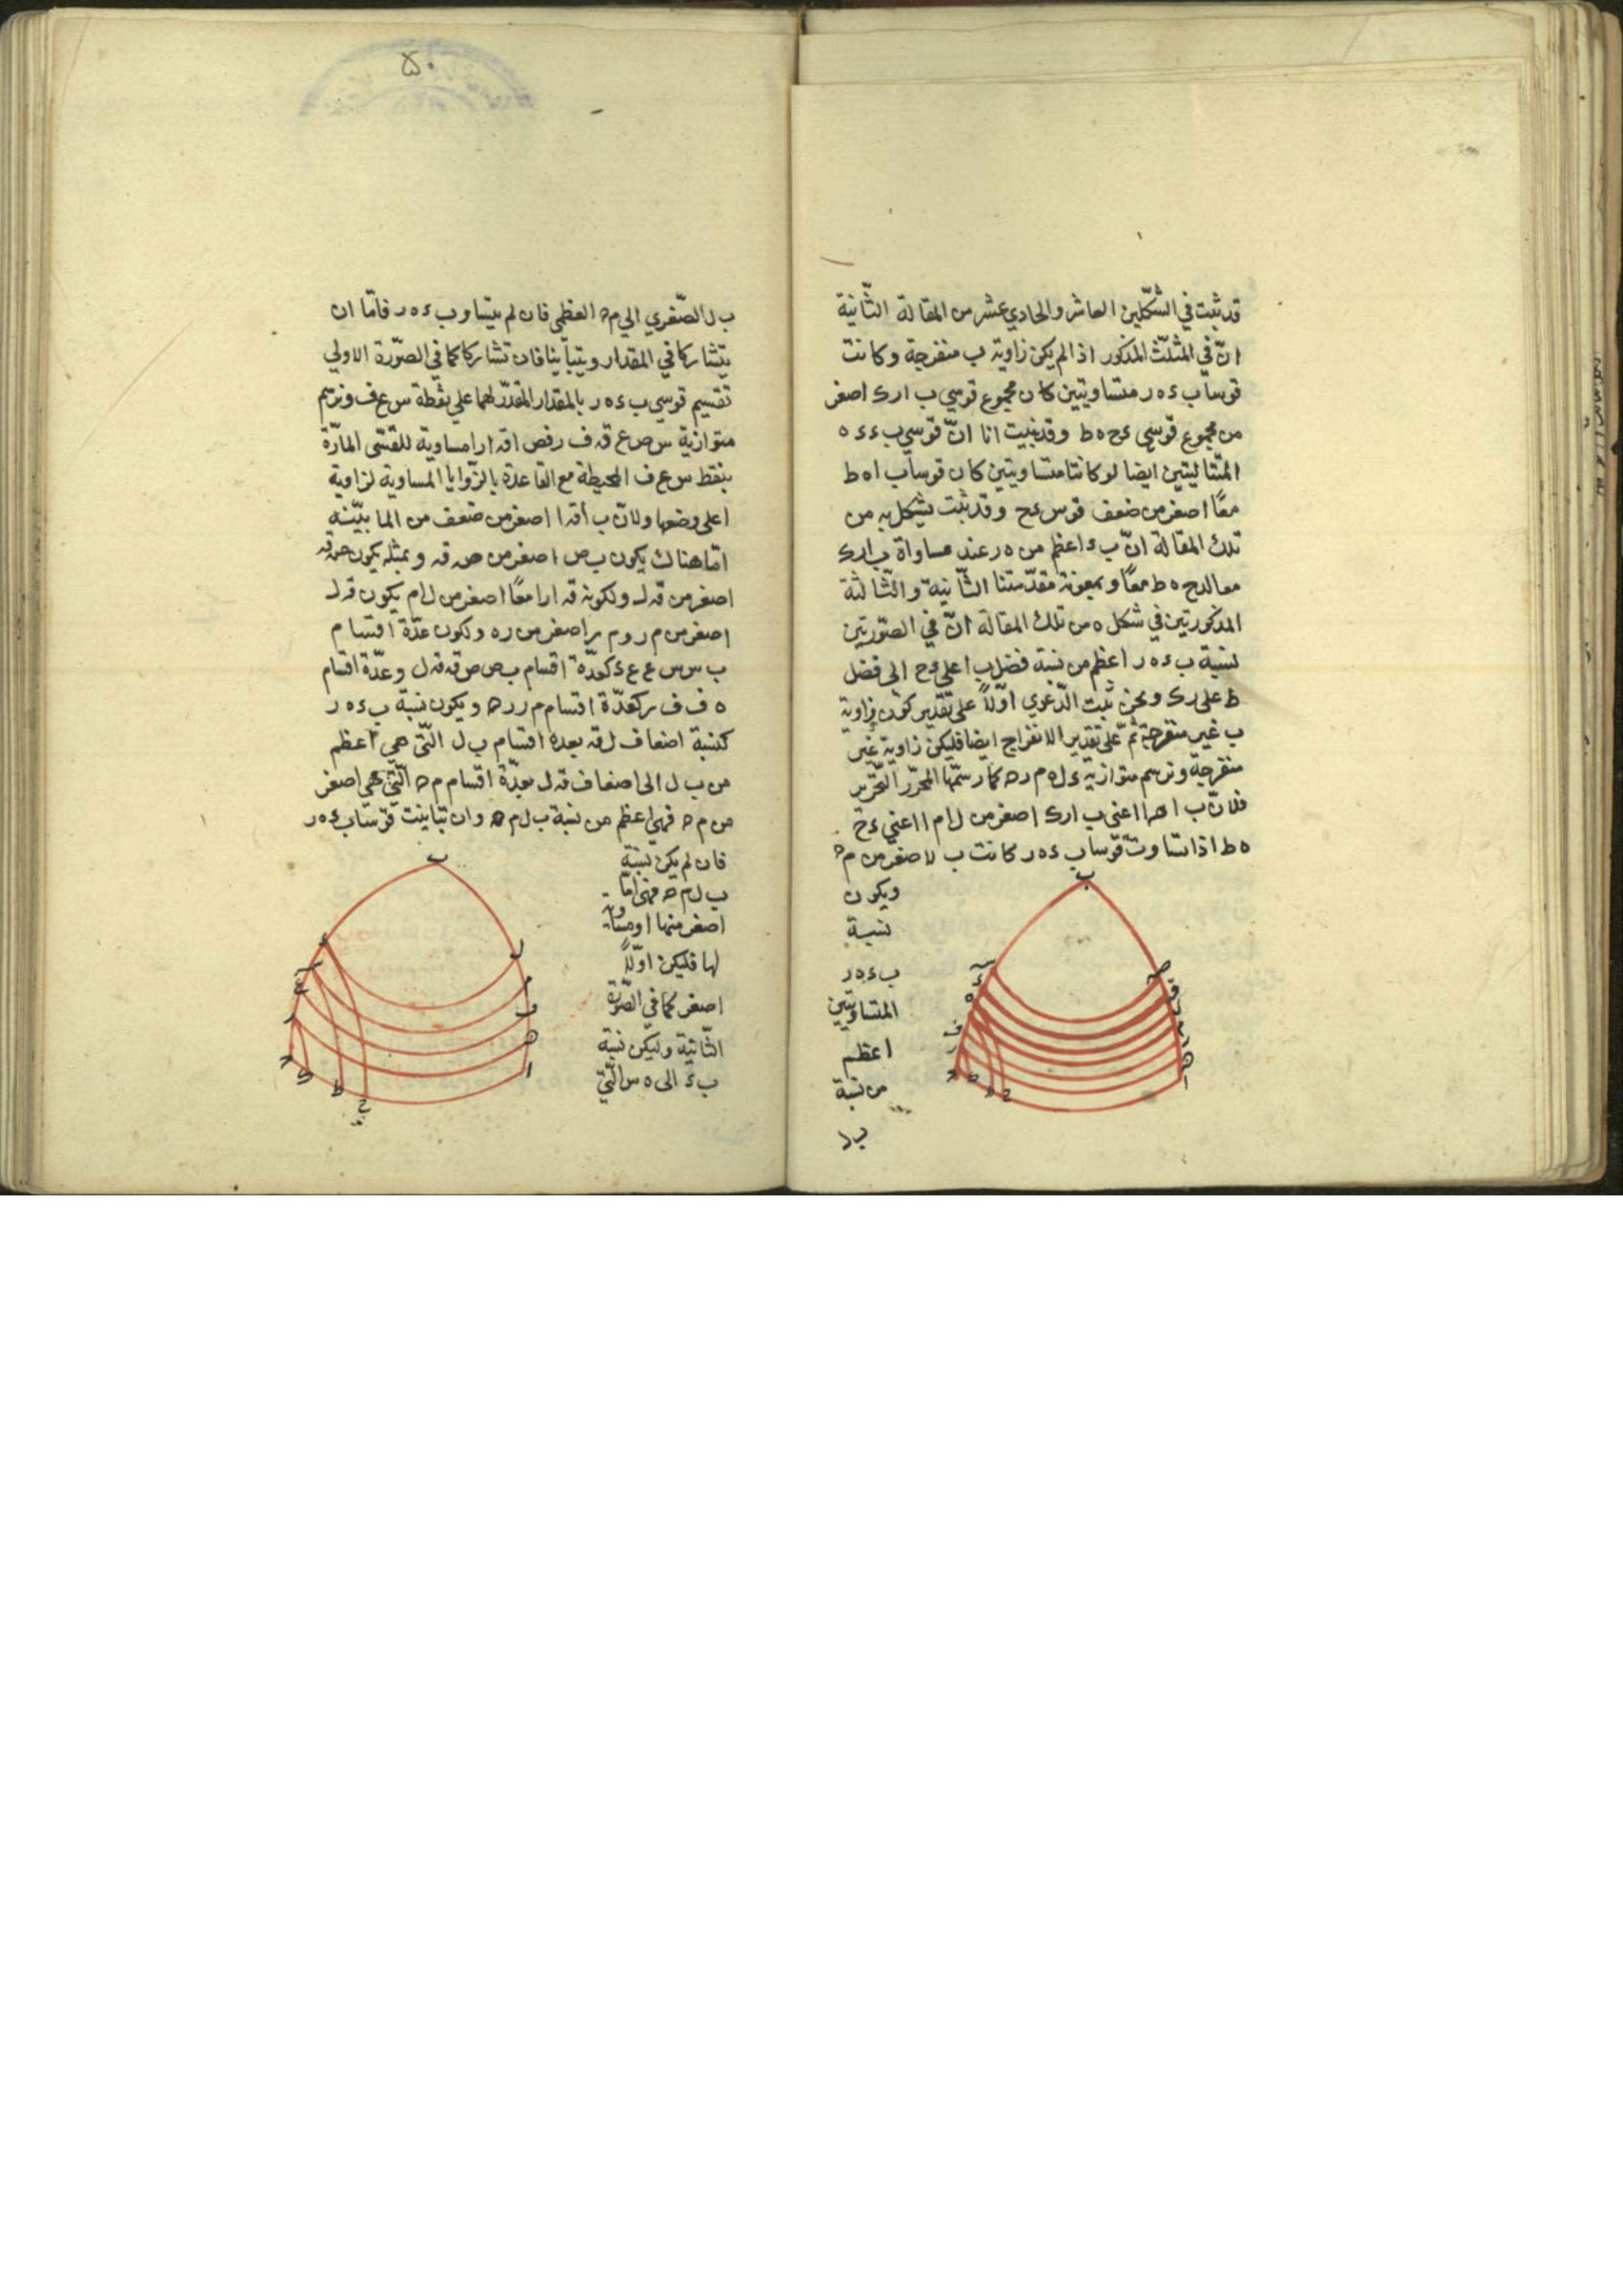 قد ثبت في الشكلين العاشر والحادي عشر من المقالة الثانية
انّ في المثلث المذكور اذا لم يكن زاوية ب منفرجة وكانت
قوسا ب ء ه ر متساويتين كان مجموع قوسي ب ا ر ك اصغر
من مجموع قوسي ء ح ه ط وقد ثبت انا انّ قوسي ب ء ء ه
المتتاليتين ايضا لو كانتا متساويتين كان قوسا ب ا ه ط
معًا اصغر من ضعف قوس ء ح وقد ثبت بشكل يه من
تلك المقالة انّ ب ء اعظم من ه ر عند مساواة ب ا ر ك
معا لدح ه ط معًا وبمعونة مقدّمتنا الثانية والثّالثة
المذكورتين في شكل ه من تلك المقالة انّ في الصّورتين
نسبة ب ء ه ر اعظم من نسبة فضل ب ا على ء ح الى فضل
ه ط على ر ك ونحن نثبت الدّعوي اوّلاً على تقدير كون زاوية
ب غير منفرجة ثمّ على تقدير الانفراج ايضا فليكن زاوية غير
منفرجة ونرسم متوازية ء ل ه م ر ص كما رسمّها المحرّر التحرير
فلانّ ب ا ص ا اعنى ب ا ر ك اصغر من ل ا م ا اعني ء ح
ه ط اذا تساوت قوسا ب ء ه ر كانت ب ل اصغر من م ص
ويكون
نسبة
ب ء ه ر
المتساويتين
اعظم
من نسبة
ب ل
۵۰
ب ل الصّغري الي م ص العظمى فان لم يتساو ب ء ه ر فامّا ان
يتشاركا في المقدار ويتباينا فان تشاركا كما في الصّورة الاولي
نقسيم قوسي ب ء ه ر بالمقدار المقدّر لهما علي نقطة س ع ف ونرسم
متوازية س ص ع ق ف ر فص ا ق ا ر ا مساوية للقسّى المارّة
بنقط س ع ف المحيطة مع القاعدة بالزّوايا المساوية لزاوية
ا على وضعها ولانّ ب ا ق ا اصغر من ضعف ص ا لما بيّنه
امّا هناك يكون ب ص اصغر من ص ق وبمثله يكون ص ق
اصغر من ق ل ولكونه ق ا ر ا معًا اصغر من ل ا م يكون ق ل
اصغر من م ر و م ر اصغر من ر ص ولكون عدّة اقسام
ب س س ع ع ء كعدّة اقسام ب ص ص ق ق ل وعدّة اقسام
ه ف ف ر كعدّة اقسام م ر ر ص ويكون نسبة ب ء ه ر
كنسبة اضعاف ل ق بعده اقسام ب ل الّتي هي اعظم
من ب ل الى اضعاف ق ل بعدّة اقسام م ص الّتي هي اصغر
من م ص فهي اعظم من نسبة ب ل م ص وان تباينت قوسا ب ء ه ر
فان لم يكن نسبة
ب ل م ص فهى امّا
اصغر منها او مساوية
لها فليكن اوّلاً
اصغر كما في الصّورة
الثّانية وليكن نسبة
ب ء الى ه س الّتي